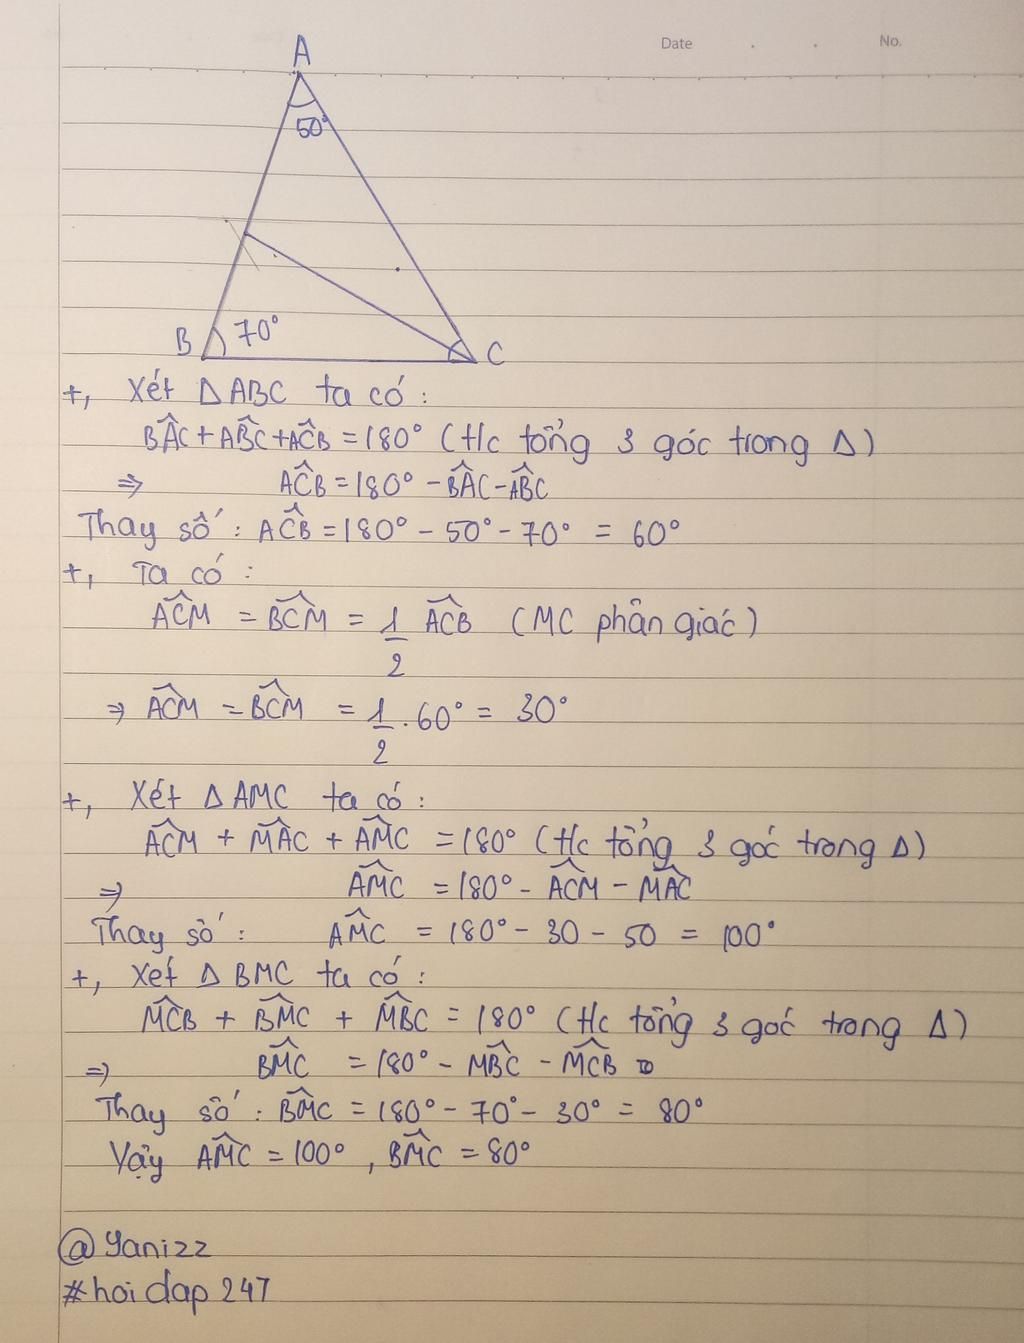 Date No.
A
50°
B 70° C
+, Xét Δ ABC ta có :
BÂC + AB̂C + AĈB = 180° (t/c tổng 3 góc trong Δ)
⇒ AĈB = 180° - BÂC - AB̂C
Thay số : AĈB = 180° - 50° - 70° = 60°
+, Ta có :
AĈM = BĈM = 1/2 AĈB (MC phân giác)
⇒ AĈM = BĈM = 1/2 . 60° = 30°
+, Xét Δ AMC ta có :
AĈM + MÂC + AM̂C = 180° (t/c tổng 3 góc trong Δ)
⇒ AM̂C = 180° - AĈM - MÂC
Thay số : AM̂C = 180° - 30 - 50 = 100°
+, Xét Δ BMC ta có :
MĈB + BM̂C + MB̂C = 180° (t/c tổng 3 góc trong Δ)
⇒ BM̂C = 180° - MB̂C - MĈB
Thay số : BM̂C = 180° - 70° - 30° = 80°
Vậy AM̂C = 100° , BM̂C = 80°
@Yanizz
#hoi dap 247